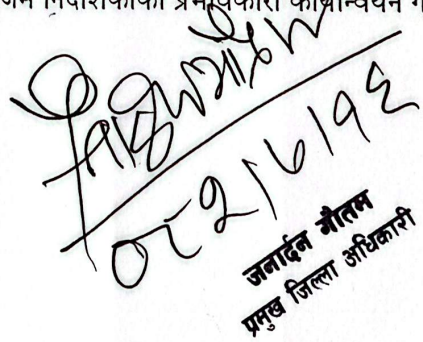 निर्देशिकाको प्रभावकारी कार्यान्वयन
०८२।७।१६
जनार्दन गौतम
प्रमुख जिल्ला अधिकारी